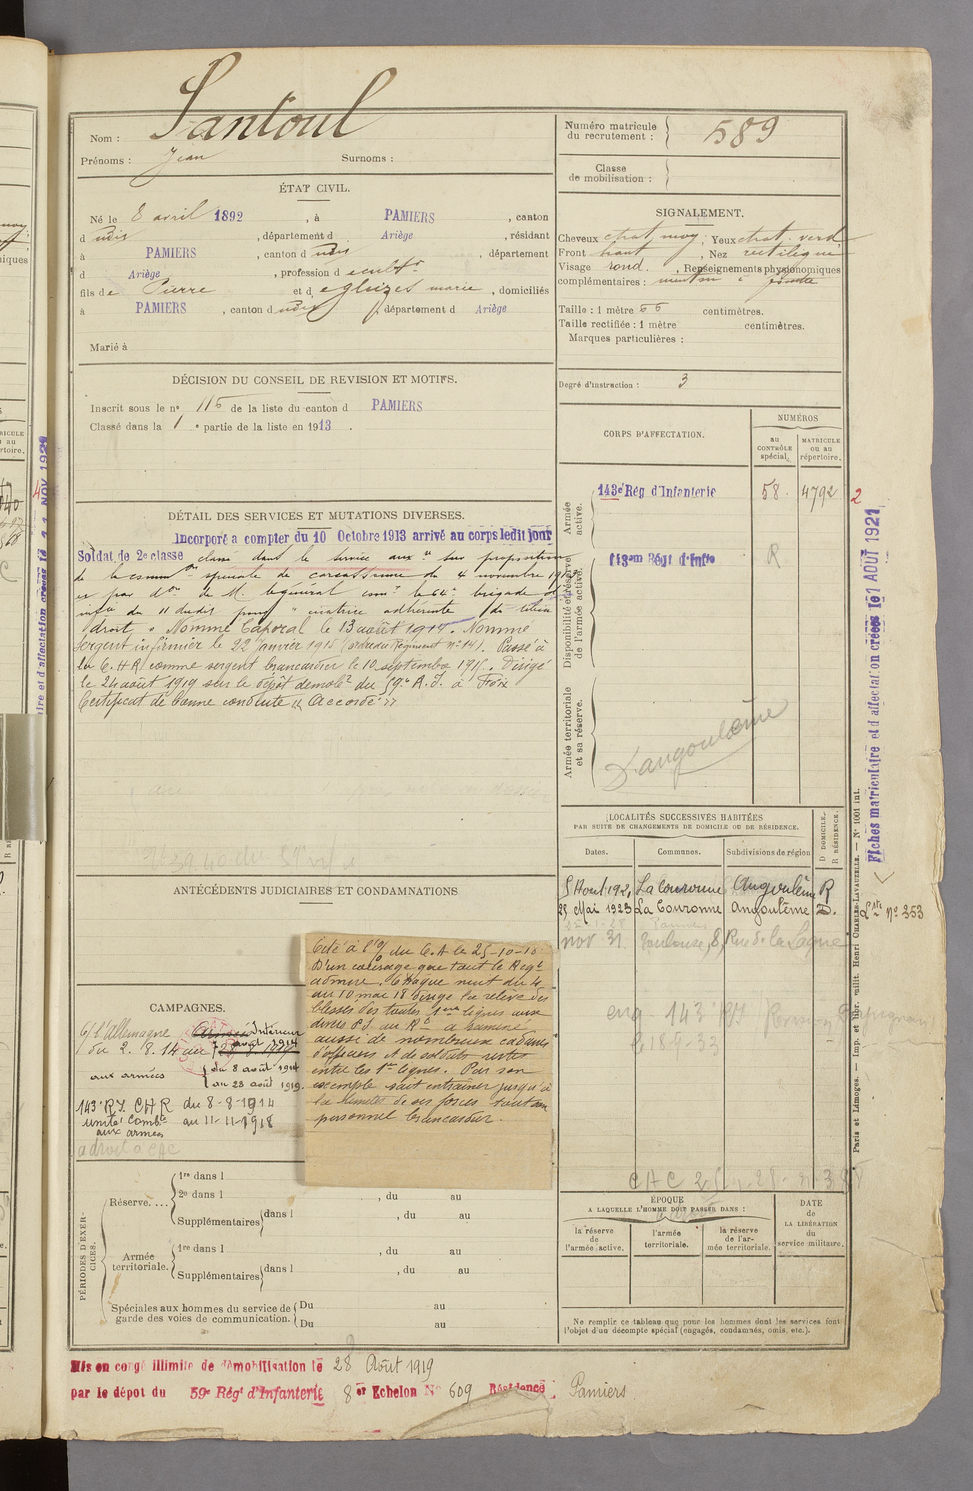 Nom : Santoul
Prénoms : Jean Surnoms :
ÉTAT CIVIL.
Né le 8 avril 1892, à PAMIERS, canton
d udis, département d Ariège, résidant
à PAMIERS, canton d udis, département
d Ariège, profession d
fils de Pierre et d eglizes marie, domiciliés
à PAMIERS, canton d udis, département d Ariège
Marié à
DÉCISION DU CONSEIL DE REVISION ET MOTIFS.
Inscrit sous le n° 115 de la liste du canton d PAMIERS
Classé dans la 1e partie de la liste en 1913.
DÉTAIL DES SERVICES ET MUTATIONS DIVERSES.
Incorporé a compter du 10 Octobre 1913 arrivé au corps ledit jour
Soldat de 2e classe classé dans le service aux re sur proposition
de la comm on spéciale de carcassonne du 4 novembre 1913
et par d on de M. le général com t la 64e brigade d'
inf ie du 11 dudit pour "cicatrice adhérente
droit" Nommé Caporal le 13 août 1914. Nommé
sergent infirmier le 22 janvier 1915 (ordre du Régiment n° 141). Passé à
la C.H.R. comme sergent brancardier le 10 septembre 1915. Dirigé
le 24 août 1919 sur le dépôt démob r du 59e R.I. à Foix
Certificat de bonne conduite "Accordé"
ANTÉCÉDENTS JUDICIAIRES ET CONDAMNATIONS
Cité à l'o/ du C.A le 25-10-18
D'un courage que tout le Reg t
admire. Chaque nuit du 4
au 10 mai 18 dirige la relève des
blessés des toutes 1ères lignes aux
divers P.S. du R t a ramené
aussi de nombreux cadavres
d'officiers et de soldats restés
entre les 1es lignes. Par son
exemple sait entraîner jusqu'à
la limite de ses forces tout son
personnel brancardier.
CAMPAGNES.
C/ l'Allemagne Intérieur
du 2.8.14 au 7 août 1914
aux armées du 8 août 1914
au 28 août 1919.
143e R.I. CHR du 8-8-1914
unité comb te au 11-11-1918
aux armées
a droit à CAC
PÉRIODES D'EXERCICES.
Réserve....
1re dans l
2e dans l, du au
Supplémentaires dans l, du au
Armée territoriale.
1re dans l, du au
Supplémentaires dans l, du au
Spéciales aux hommes du service de garde des voies de communication.
Du au
Du au
Mis en congé illimité de démobilisation le 28 Août 1919
par le dépot du 59e Régt d'Infanterie 8e Echelon N° 609 Résidence : Pamiers
Numéro matricule du recrutement : 589
Classe de mobilisation :
SIGNALEMENT.
Cheveux chat. moy, Yeux chat. verd
Front haut, Nez rectiligne
Visage rond., Renseignements physionomiques
complémentaires : menton à
Taille : 1 mètre 66 centimètres.
Taille rectifiée : 1 mètre centimètres.
Marques particulières :
Degré d'instruction : 3
CORPS D'AFFECTATION.
NUMÉROS
au CONTRÔLE spécial.
MATRICULE ou au répertoire.
Armée active.
143e Rég d'Infanterie 58. 4792 2
Disponibilité et réserve de l'armée active.
143em Régt d'Infie R
Armée territoriale et sa réserve.
D'angoulême
LOCALITÉS SUCCESSIVES HABITÉES
PAR SUITE DE CHANGEMENTS DE DOMICILE OU DE RÉSIDENCE.
Dates. Communes. Subdivisions de région D DOMICILE. R RÉSIDENCE.
5 Aout 1921 La Couronne Angoulême R
25 Mai 1923 La Couronne Angoulême D. L ste n° 353
nov 31. Toulouse, 8, Rue de la
143 RI
le 18-9-33
CAC
ÉPOQUE
A LAQUELLE L'HOMME DOIT PASSER DANS :
la réserve de l'armée active.
l'armée territoriale.
la réserve de l'armée territoriale.
DATE de LA LIBÉRATION du service militaire.
Ne remplir ce tableau que pour les hommes dont les services font
l'objet d'un décompte spécial (engagés, condamnés, omis, etc.).
Fiches matriculaire et d'affectation créées le 1 AOUT 1921
Paris et Limoges. — Imp. et libr. milit. Henri CHARLES-LAVAUZELLE. — N° 1001 int.